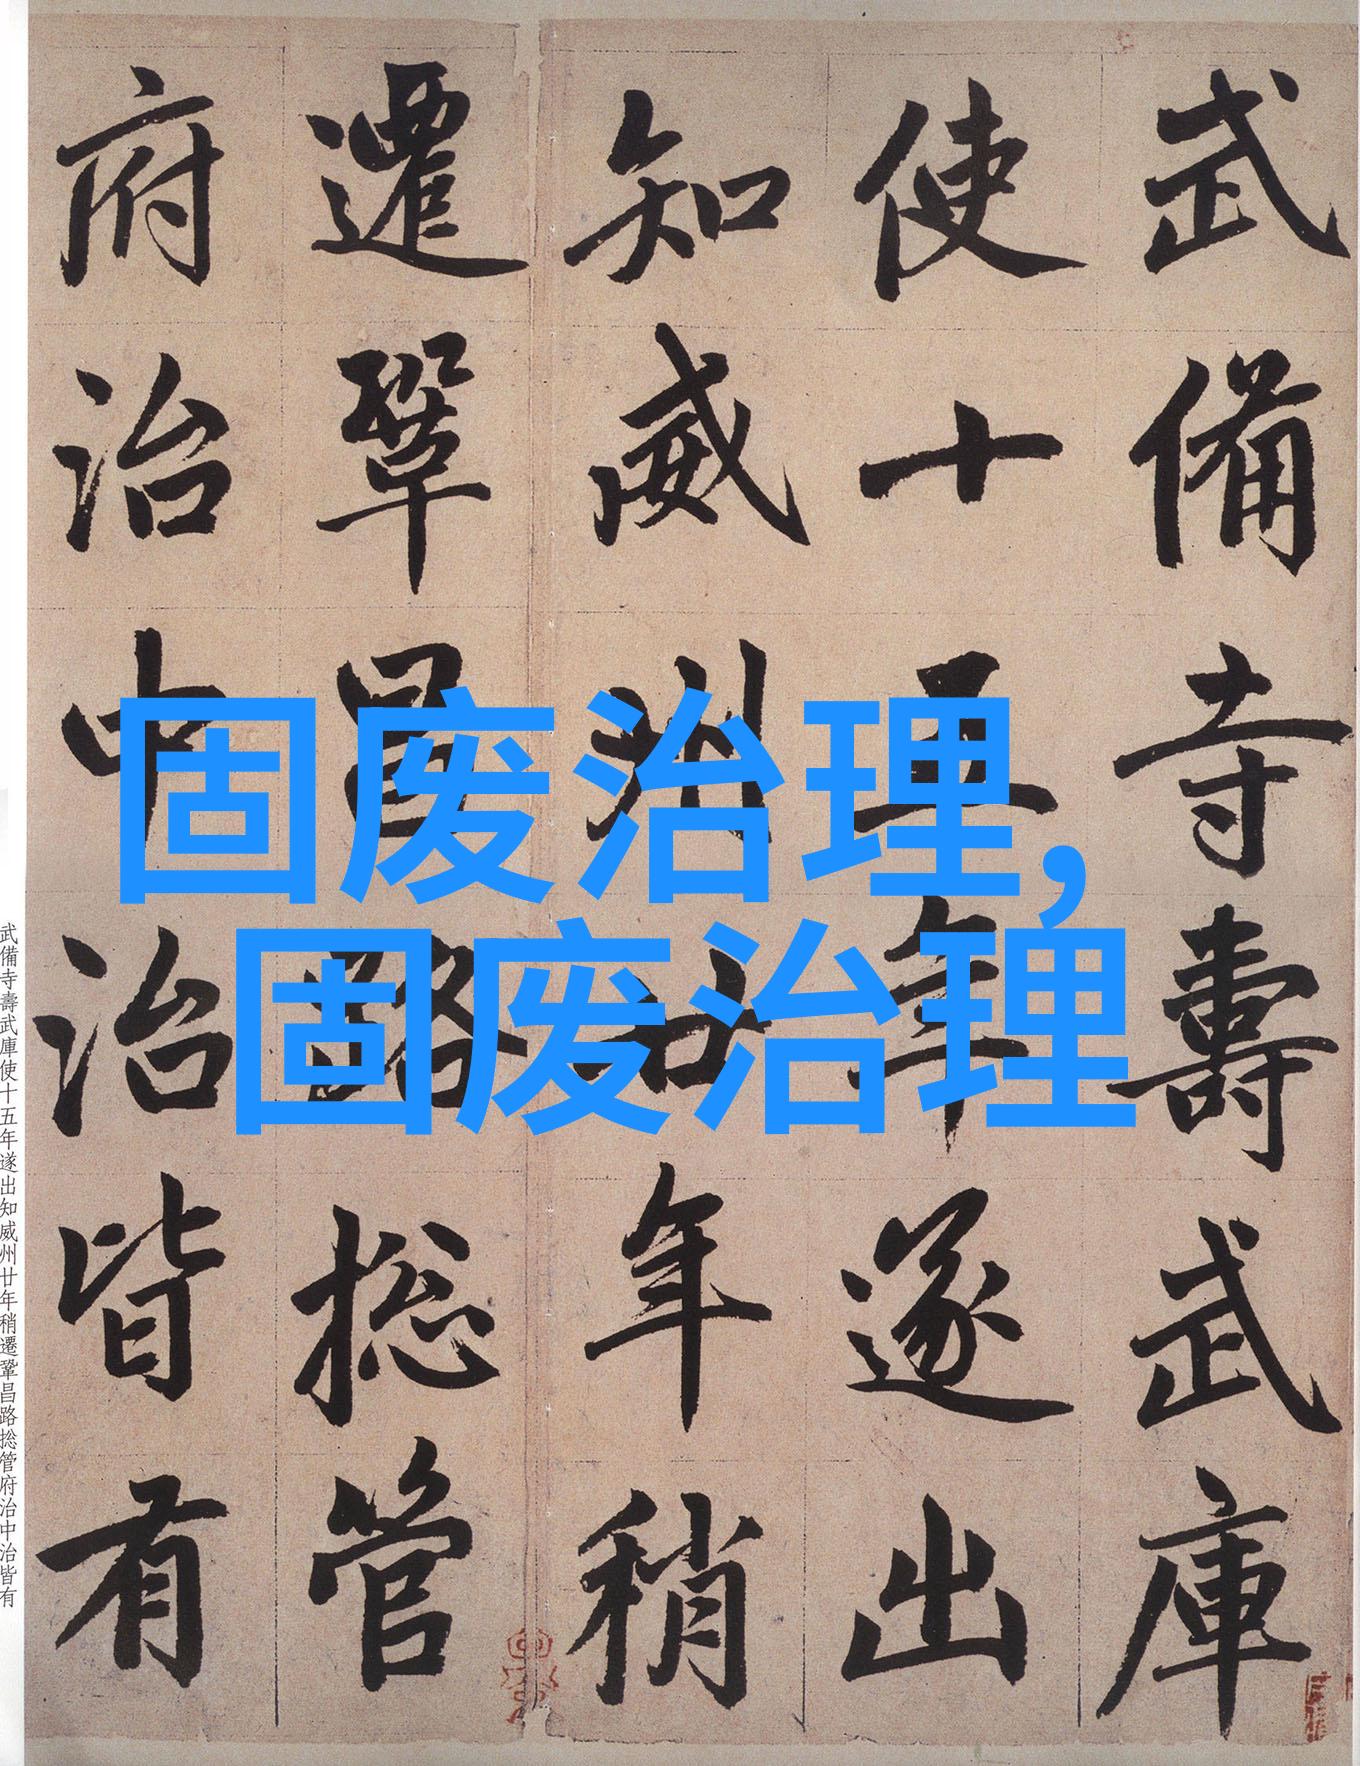 武備寺壽武庫
使十五年遂出
知威州廿年稍
遷鞏昌路捴管
府治中治皆有
固废治理,
固废治理
武備寺壽武庫使十五年遂出知威州廿年稍遷鞏昌路捴管府治中治皆有